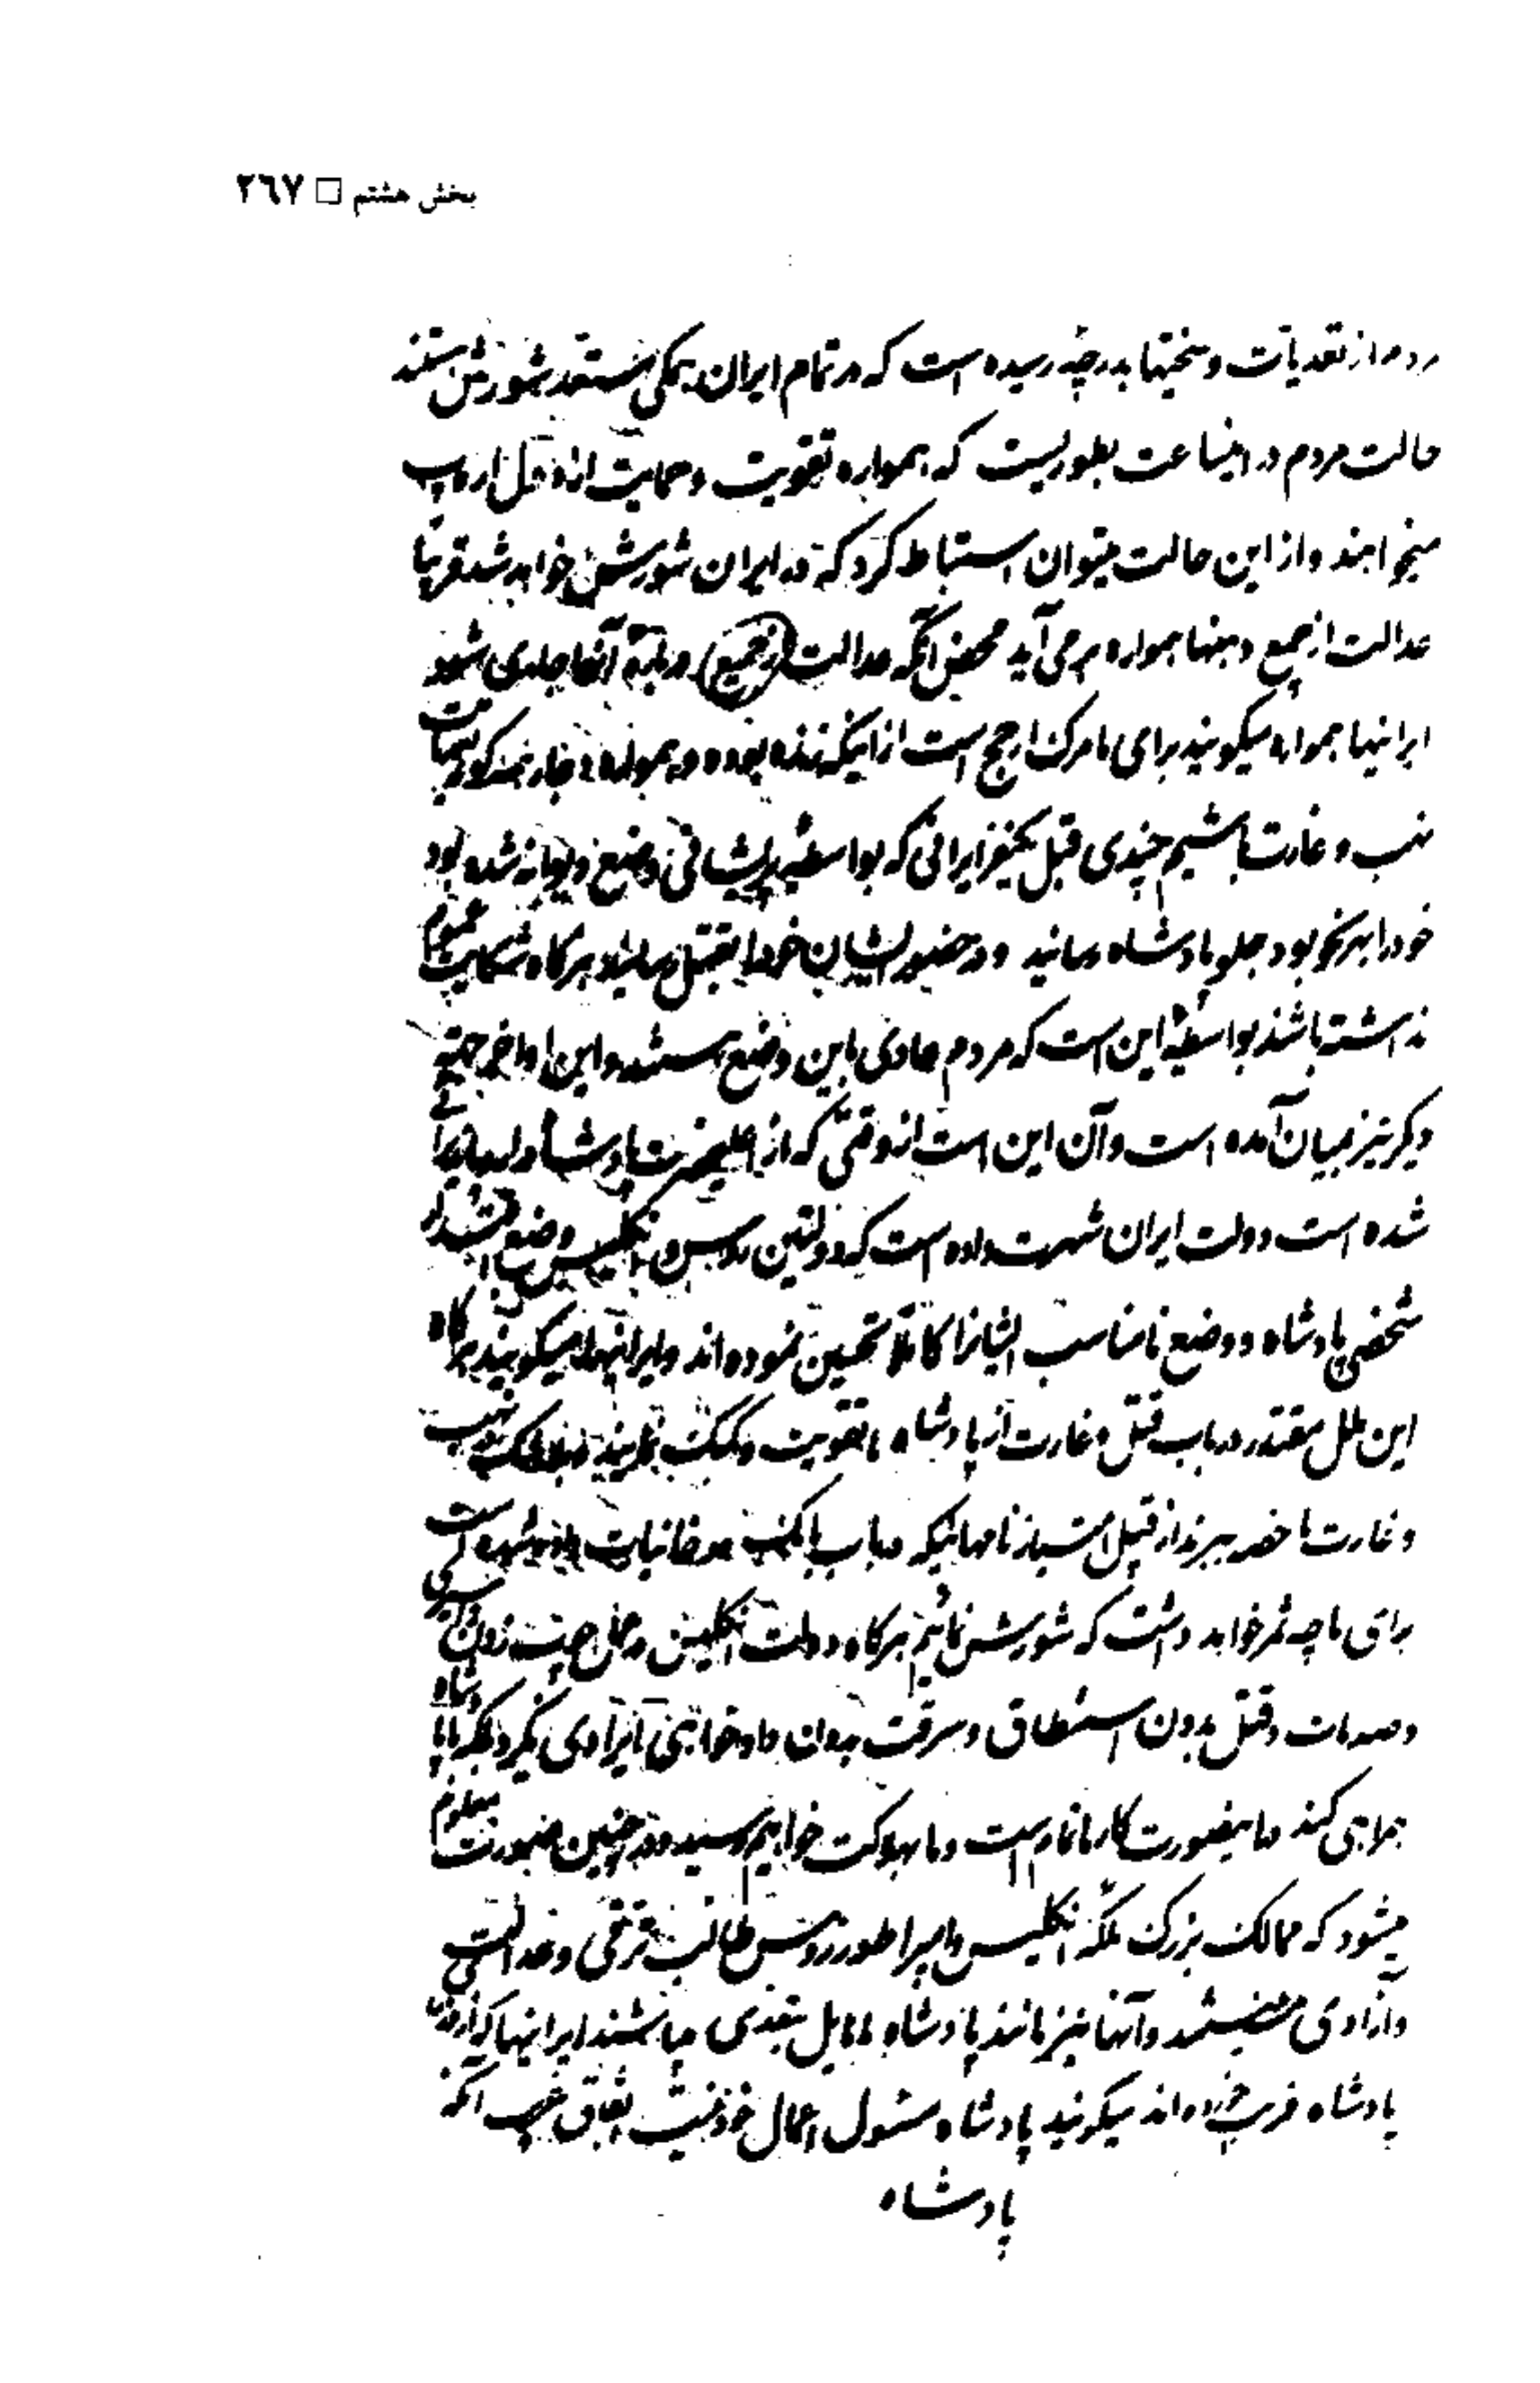 بخش هشتم □ ٢٦٧
مردم از تعدیات و سختیها بدرجهٔ رسیده است که در تمام ایران همگی مستعد شورش هستند
حالت مردم در اینساعت بطوریست که همواره تقویت و حمایت از دول اروپ
میخواهند و از این حالت میتوان استنباط کرد که در ایران شورش خواهد شد قربا
عدالت از جمیع دهنها همواره برمی‌آید محض آنکه عدالت (از جمیع) درباره آنها جاری شود
ایرانیها همواره میگویند برای ما مرگ ارجح است از اینکه زنده بوده و همواره دچار
نهب و غارت باشیم چندی قبل یکنفر ایرانی که بواسطهٔ پریشانی وضع دیوانه شده بود
خود را بهر نحو بود جلو پادشاه رسانید و در حضور ایشان خود را بقتل رسانید هرگاه شکایت عموم
نداشته باشند بواسطهٔ این است که مردم عادی باین وضع هستند و این اواخر جهتی
دیگر نیز بمیان آمده است و آن این است از وقتی که از اعلیحضرت پادشاه
شده است دولت ایران شهرت داده است که دولتین روس و انگلیس وضع اقتدار
شخصی پادشاه و وضع نامناسب ایشانرا کاملا تحسین نموده‌اند و ایرانیها میگویند هرگاه
این ملل مقتدر در باب قتل و غارت از پادشاه ما تقویت و کمک نمایند نهب
و غارت ما حضه ببرند از قبیل امتیازنامهائیکه در باب بانک و دخانیات داده شده است
برای ما چه ثمر خواهد داشت که شورش نمائیم هرگاه دولت انگلیس در خصوص زدن
و صدمات و قتل بدون استنطاق و سرقت بدون دادخواهی ایرادی نگیرد بلکه با پادشاه
همراهی کند در اینصورت کار ما تمام است و ما بهلاکت خواهیم رسید و در چنین صورت معلوم
میشود که ممالک بزرگ ملکه انگلیس و امپراطور روس طالب ترقی و عدالت
و آزادی نیستند و آنها نیز مانند پادشاه ما مایل بتعدی میباشند ایرانیها که از
پادشاه فریب خورده‌اند میگویند پادشاه مسئول اعمال خود نیست
پادشاه